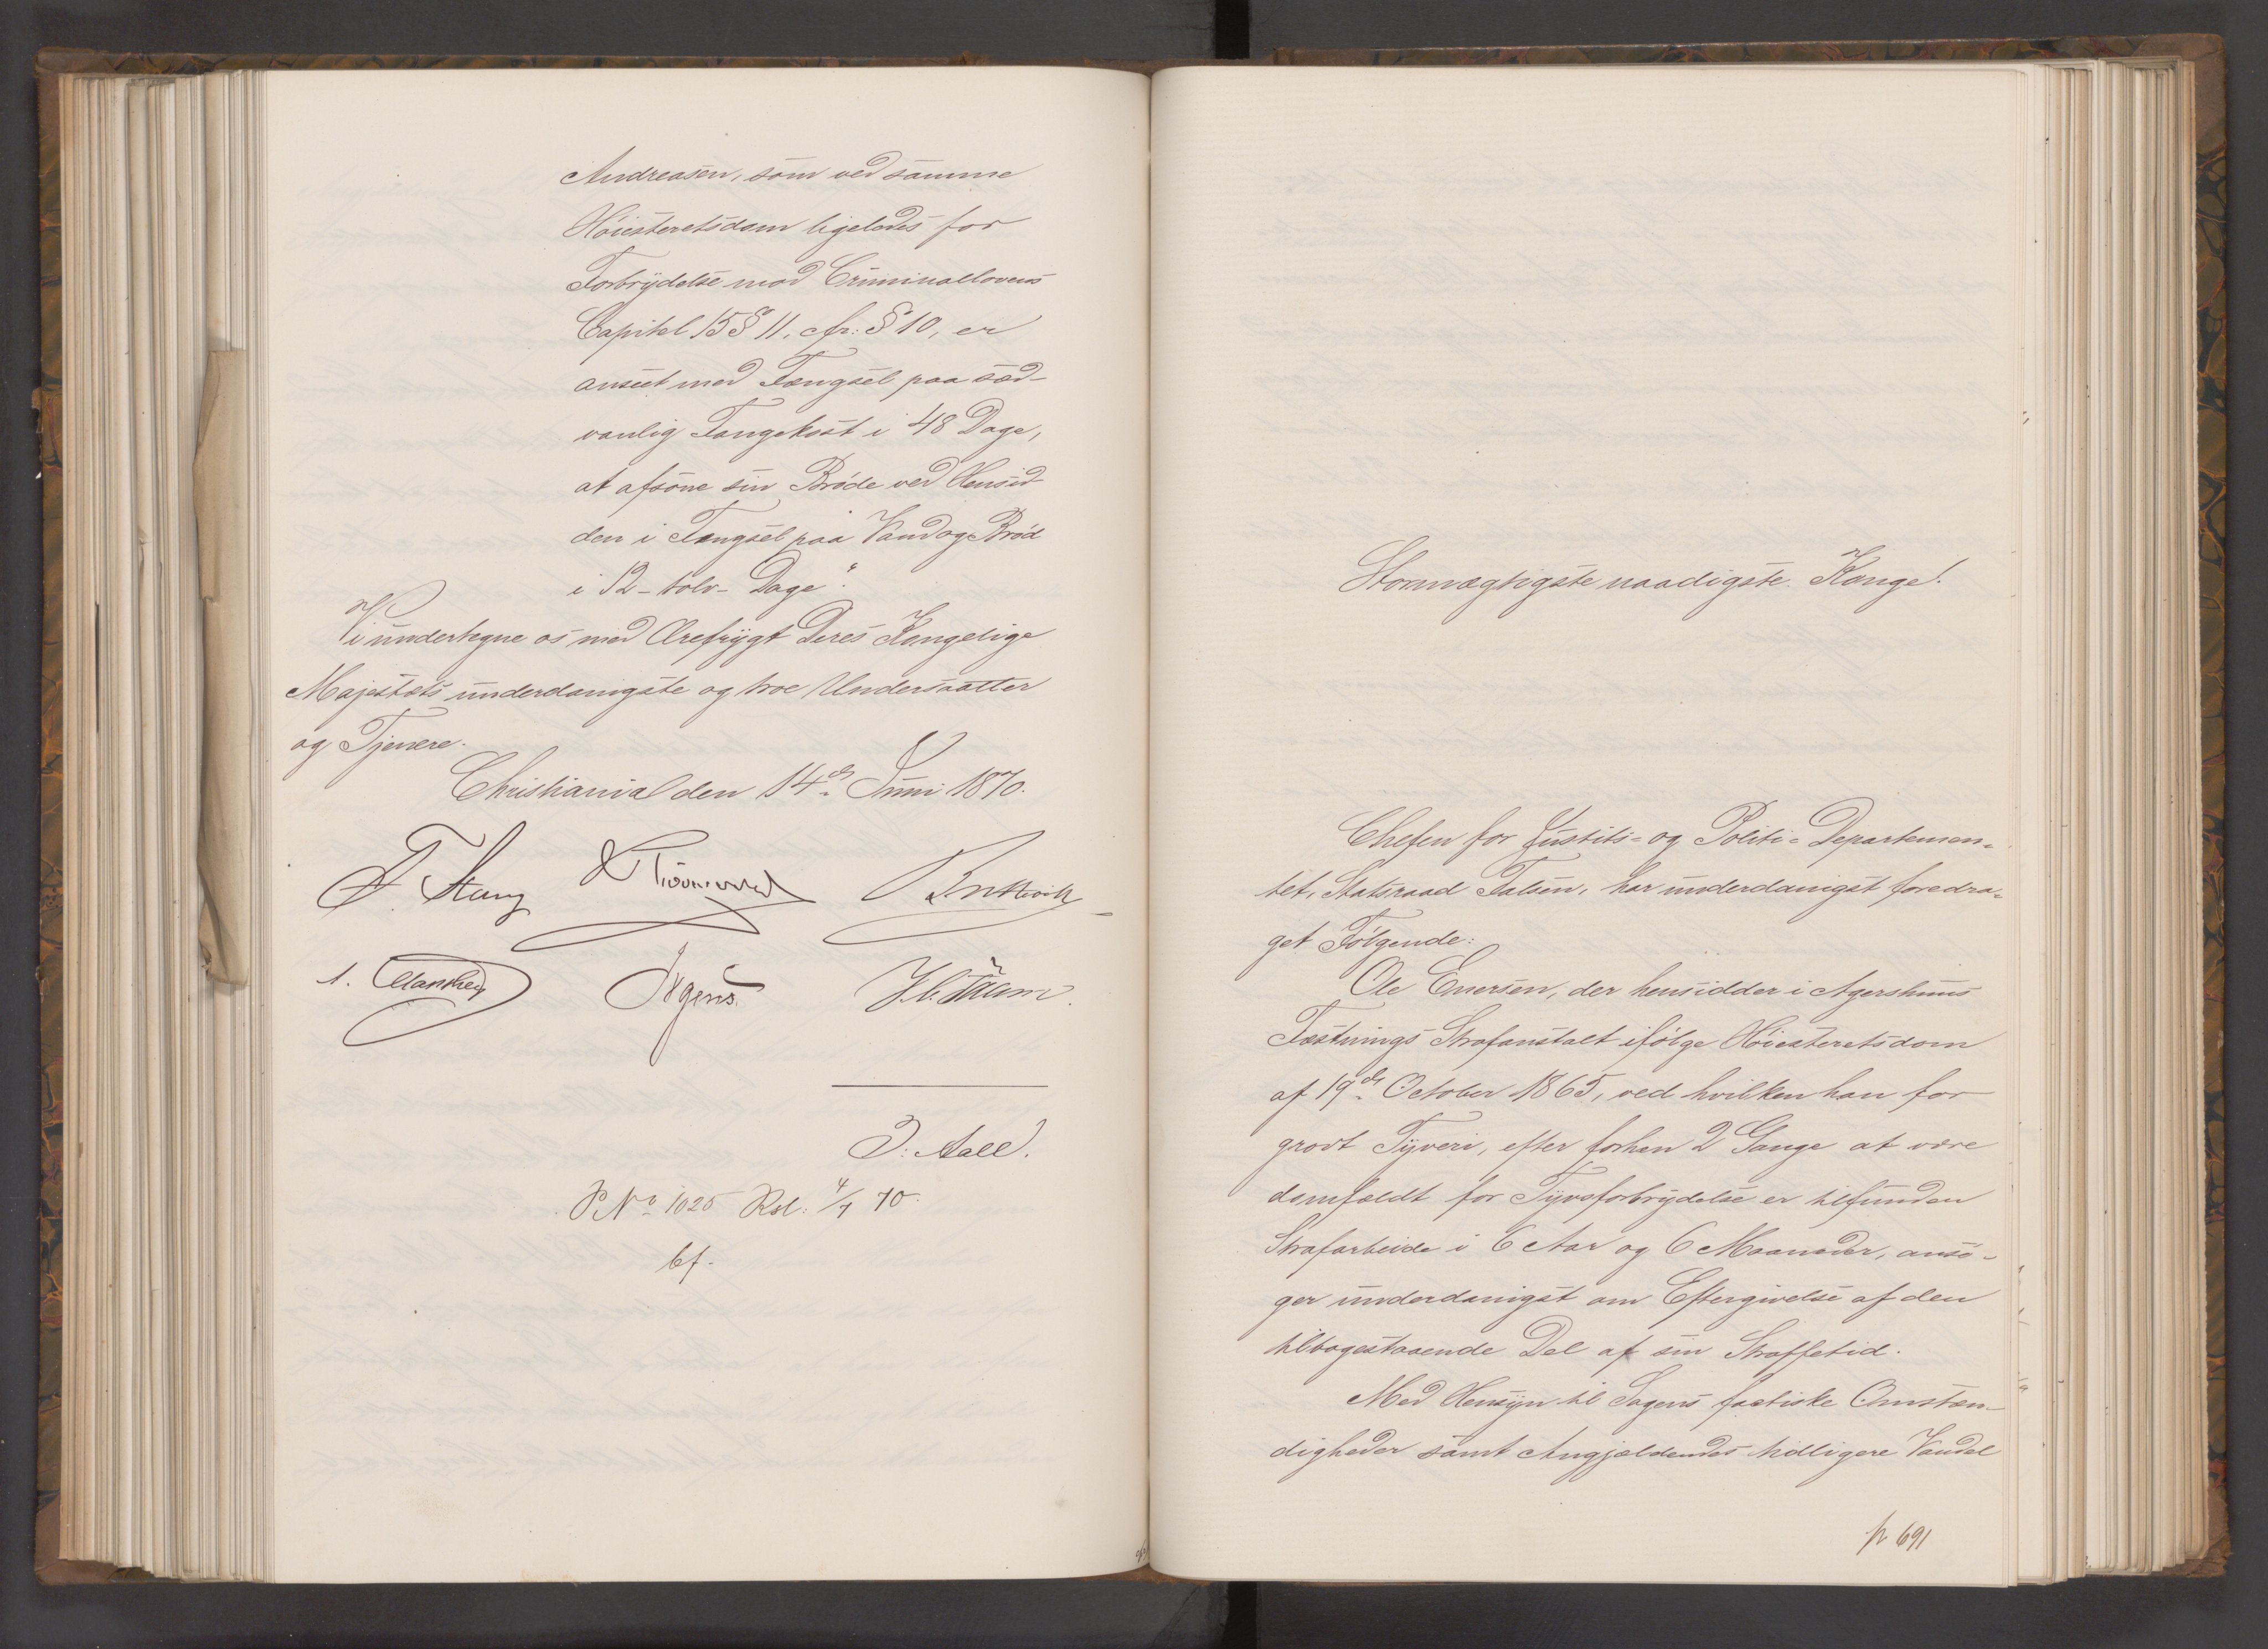 Andreasen, som ved samme
Høiesteretsdom ligeledes for
Forbrydelse mod Criminallovens
Capitel 15 § 11, cfr: § 10, er
anseet med Fængsel paa sæd-
vanlig Fangekost i 48 Dage,
at afsone sin Brøde ved Hensid
den i Fængsel paa Vand og Brød
i 12 - tolv - Dage".
Vi undertegne os med Ærefrygt Deres Kongelige
Majestæts underdanigste og troe Undersaatter
og Tjenere.
Christiania den 14de Juni 1870.
F. Stang
A. Manthey Irgens
J. Aall.
P No 1025 Rsl: 4/7 70.
bf.
Stormægtigste naadigste Konge!
Chefen for Justits- og Politi-Departemen-
tet, Statsraad Falsen, har underdanigst foredra-
get Følgende:
Ole Enersen, der hensidder i Agershuus
Fæstnings Strafanstalt ifølge Høiesteretsdom
af 19de October 1865, ved hvilken han for
grovt Tyveri, efter forhen 2 Gange at være
domfældt for Tyvsforbrydelse er tilfunden
Strafarbeide i 6 Aar og 6 Maaneder, ansø-
ger underdanigst om Eftergivelse af den
tilbagestaaende Del af sin Straffetid.
Med Hensyn til Sagens factiske Omstæn-
digheder samt Angjældendes tidligere Vandel
p 691